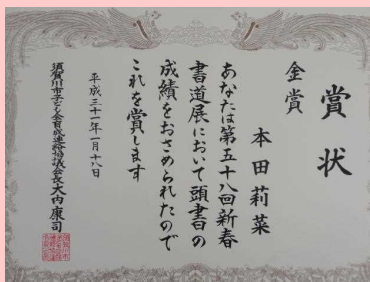 賞状
金賞
本田莉菜
あなたは第五十八回新春
書道展において頭書の
成績をおさめられたので
これを賞します
平成三十一年一月十八日
須賀川市子ども会育成連絡協議会長大内康司